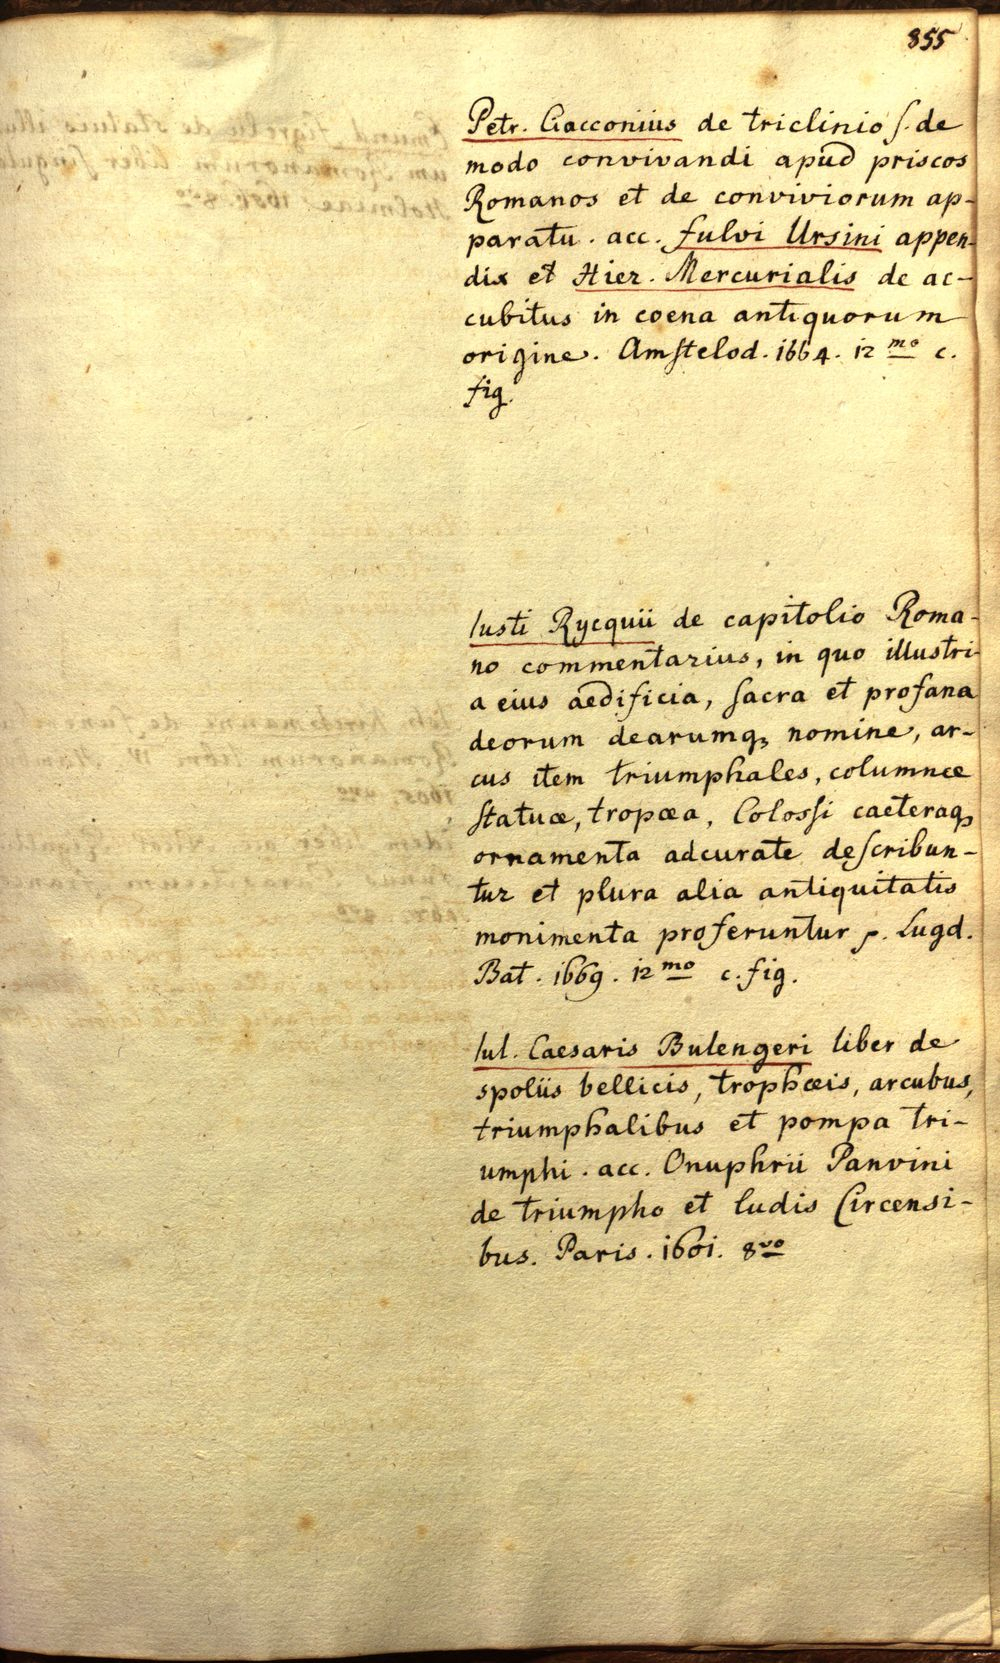 855
Petr. Ciacconius de triclinio s. de
modo convivandi apud priscos
Romanos et de conviviorum ap-
paratu. acc. Fulvi Ursini appen-
dix et Hier. Mercurialis de ac-
cubitus in coena antiquorum
origine. Amstelod. 1664. 12mo c.
fig.
Iusti Rycquii de capitolio Roma-
no commentarius, in quo illustri-
a eius aedificia, sacra et profana
deorum dearumq3 nomine, ar-
cus item triumphales, columnæ
statuæ, tropæa, Colossi caeteraq3
ornamenta adcurate describun-
tur et plura alia antiquitatis
monimenta proferuntur p. Lugd.
Bat. 1669. 12mo c. fig.
Iul. Caesaris Bulengeri liber de
spoliis bellicis, trophæis, arcubus,
triumphalibus et pompa tri-
umphi. acc. Onuphrii Panvini
de triumpho et ludis Circensi-
bus. Paris. 1601. 8vo